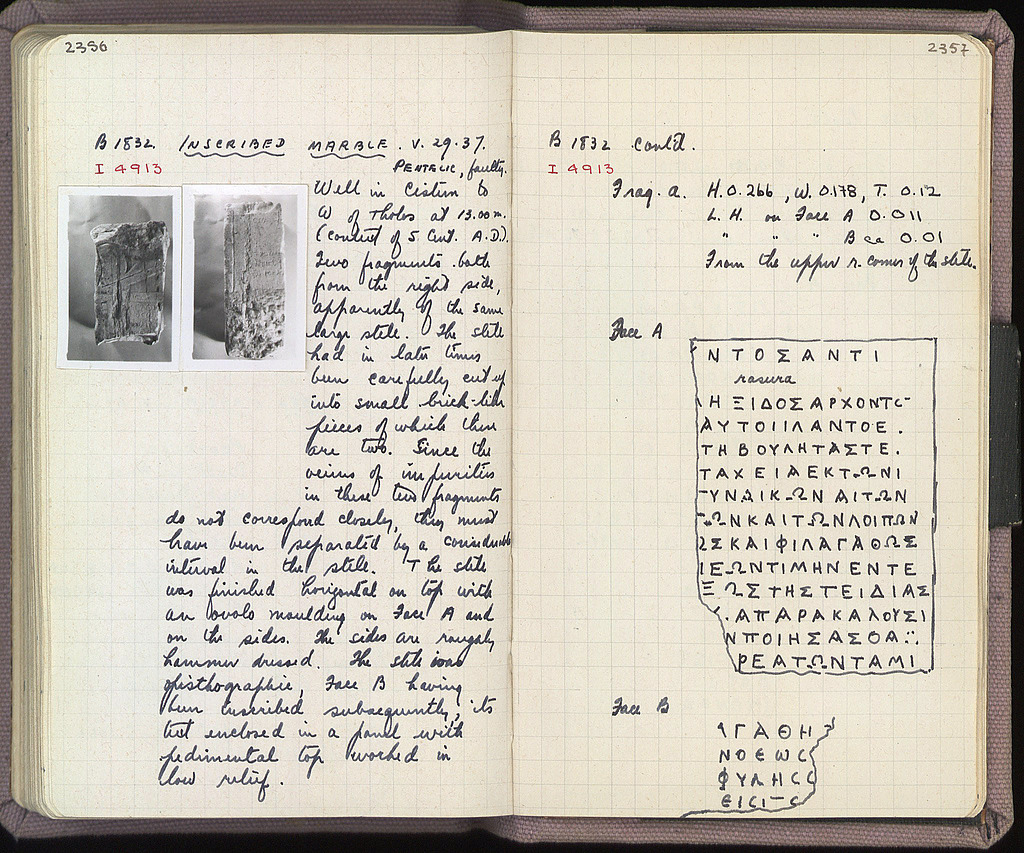 2356
B 1832 INSCRIBED MARBLE. V. 29.37.
I 4913
PENTELIC, faulty.
Well in Cistern to
W of Tholos at 13.00 m.
(context of 5 Cent. A.D.).
Two fragments both
from the right side,
apparently of the same
large stele. The stele
had in later times
been carefully cut up
into small brick-like
pieces of which these
are two. Since the
veins of impurities
in these two fragments
do not correspond closely, they must
have been separated by a considerable
interval in the stele. The stele
was finished horizontal on top with
an ovolo moulding on Face A and
on the sides. The sides are roughly
hammer dressed. The stele was
opisthographic, Face B having
been inscribed subsequently, its
text enclosed in a panel with
pedimental top worked in
low relief.
2357
B 1832 cont'd.
I 4913
Frag. a. H. 0.266, W. 0.178, T. 0.12
L. H. on Face A 0.011
" " " B ca 0.01
From the upper r. corner of the stele.
Face A
ΝΤΟΣΑΝΤΙ
rasura
ΗΞΙΔΟΣΑΡΧΟΝΤ
ΑΥΤΟΙΙΛΑΝΤΟΕ.
ΤΗΒΟΥΛΗΤΑΣΤΕ.
ΤΑΧΕΙΑΕΚΤΩΝΙ
ΥΝΑΙΚΩΝΑΙΤΩΝ
ΩΝΚΑΙΤΩΝΛΟΙΠΩΝ
ΩΣΚΑΙΦΙΛΑΓΑΘΩΣ
ΙΕΩΝΤΙΜΗΝΕΝΤΕ
ΞΩΣΤΗΣΤΕΙΔΙΑΣ
.ΑΠΑΡΑΚΑΛΟΥΣΙ
ΝΠΟΙΗΣΑΣΘΑ
ΡΕΑΤΩΝΤΑΜΙ
Face B
ΑΓΑΘΗ
ΝΟΕΩC
ΦΥΛΗC